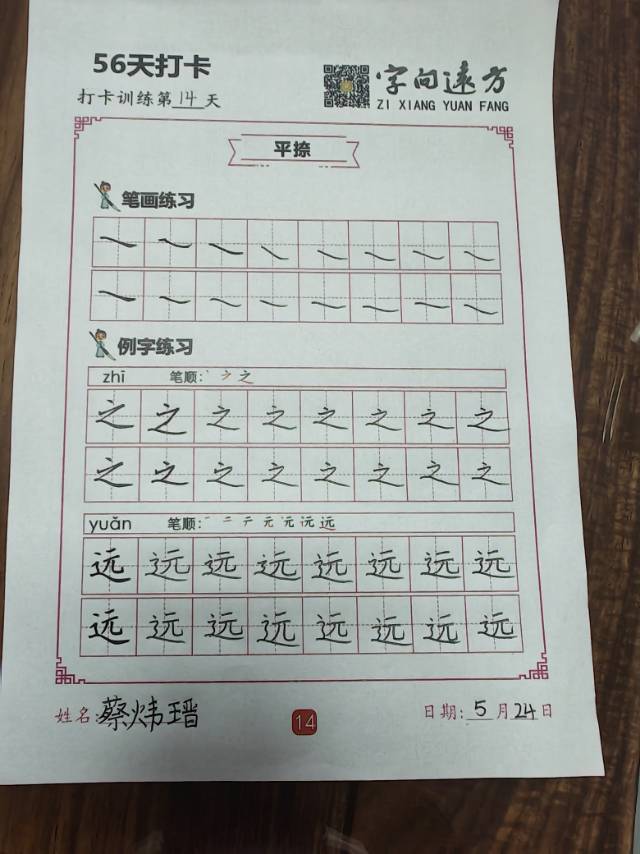 56天打卡
打卡训练第14天
字向远方
ZI XIANG YUAN FANG
平捺
笔画练习
例字练习
zhī 笔顺: 丶 之
之 之 之 之 之 之 之 之
之 之 之 之 之 之 之 之
yuǎn 笔顺: 一 二 テ 元 远
远 远 远 远 远 远 远 远
远 远 远 远 远 远 远 远
姓名:蔡炜瑨
14
日期: 5 月 24 日